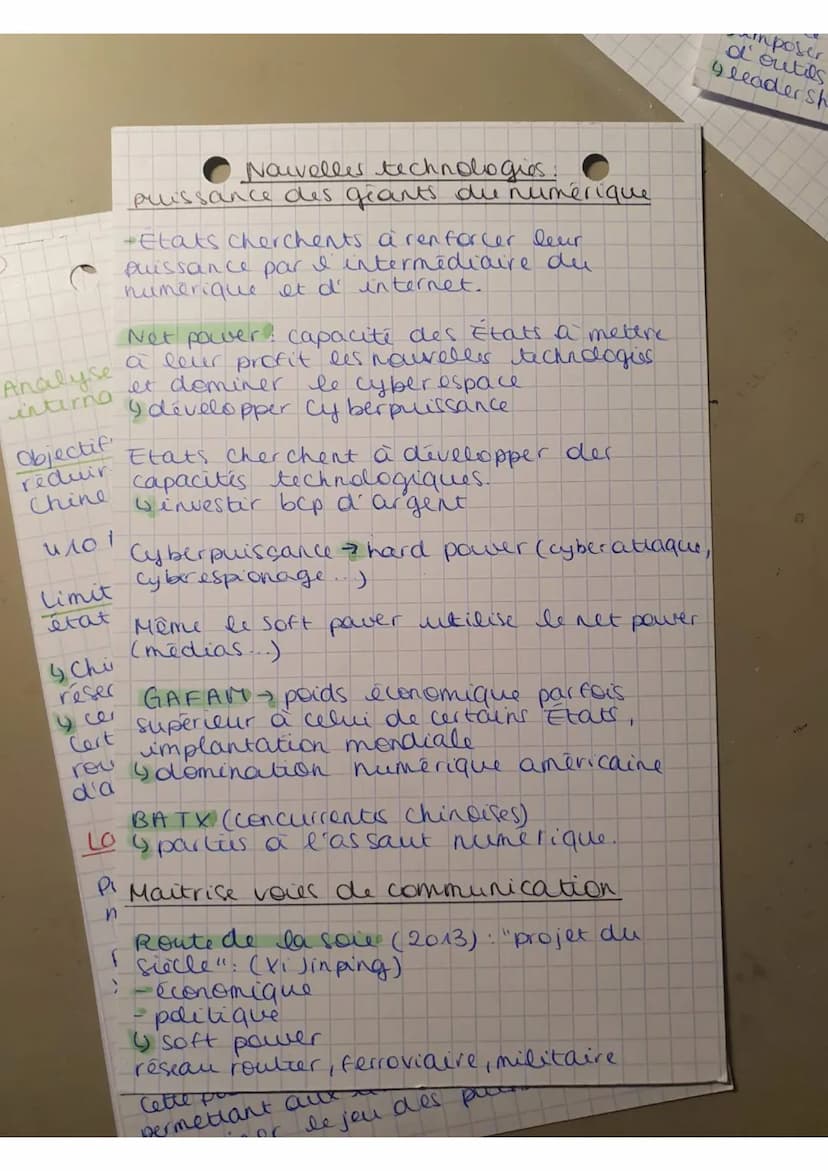 Nouvelles technologies :
puissance des géants du numérique
-Etats cherchents à renforcer leur
puissance par l'intermédiaire du
numérique et d'internet.
Net power : capacité des États à mettre
à leur profit les nouvelles technologies
et dominer le cyberespace
↳ développer cyberpuissance
Etats cherchent à développer des
capacités technologiques.
↳ investir bcp d'argent
Cyberpuissance → hard power (cyberattaque,
cyberespionage...)
Même le soft power utilise le net power
(médias...)
GAFAM → poids économique parfois
supérieur à celui de certains États,
implantation mondiale
↳ domination numérique américaine
BATX (concurrents chinoises)
↳ partis à l'assaut numérique.
Maitrise voies de communication
Route de la soie (2013) : "projet du
siècle" : (Xi Jinping)
- économique
- politique
↳ soft power
réseau routier, ferroviaire, militaire
imposer
d'outils
↳ leadersh
Analyse
interna
Objectif
réduir
Chine
Limit
état
↳ Chi
réser
↳ cer
Cert
rou
d'a
Cette
permettant aux
le jeu des